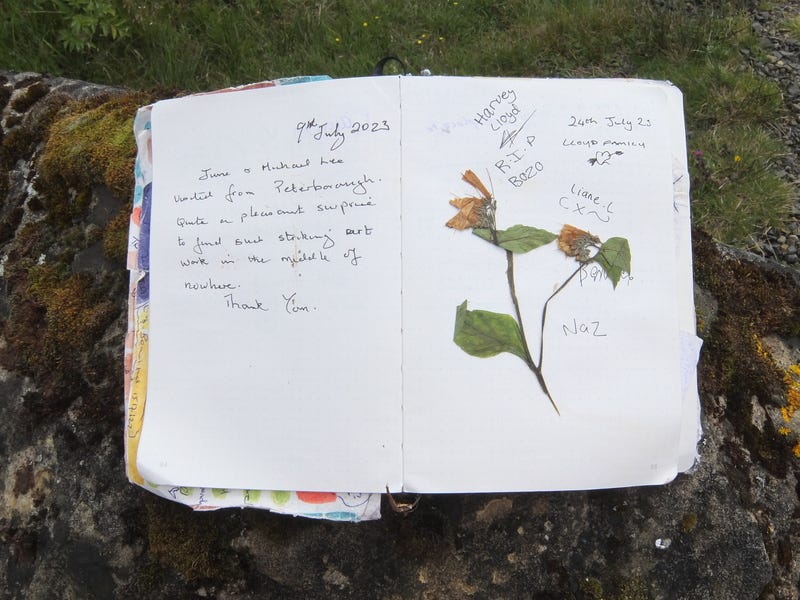 9th July 2023
June & Michael Lee
visited from Peterborough.
Quite a pleasant surprise
to find such striking art
work in the middle of
nowhere.
Thank You.
Harvey
Lloyd
R.I.P
BOZO
24th July 23
LLOYD FAMILY
Liane.L
NaZ